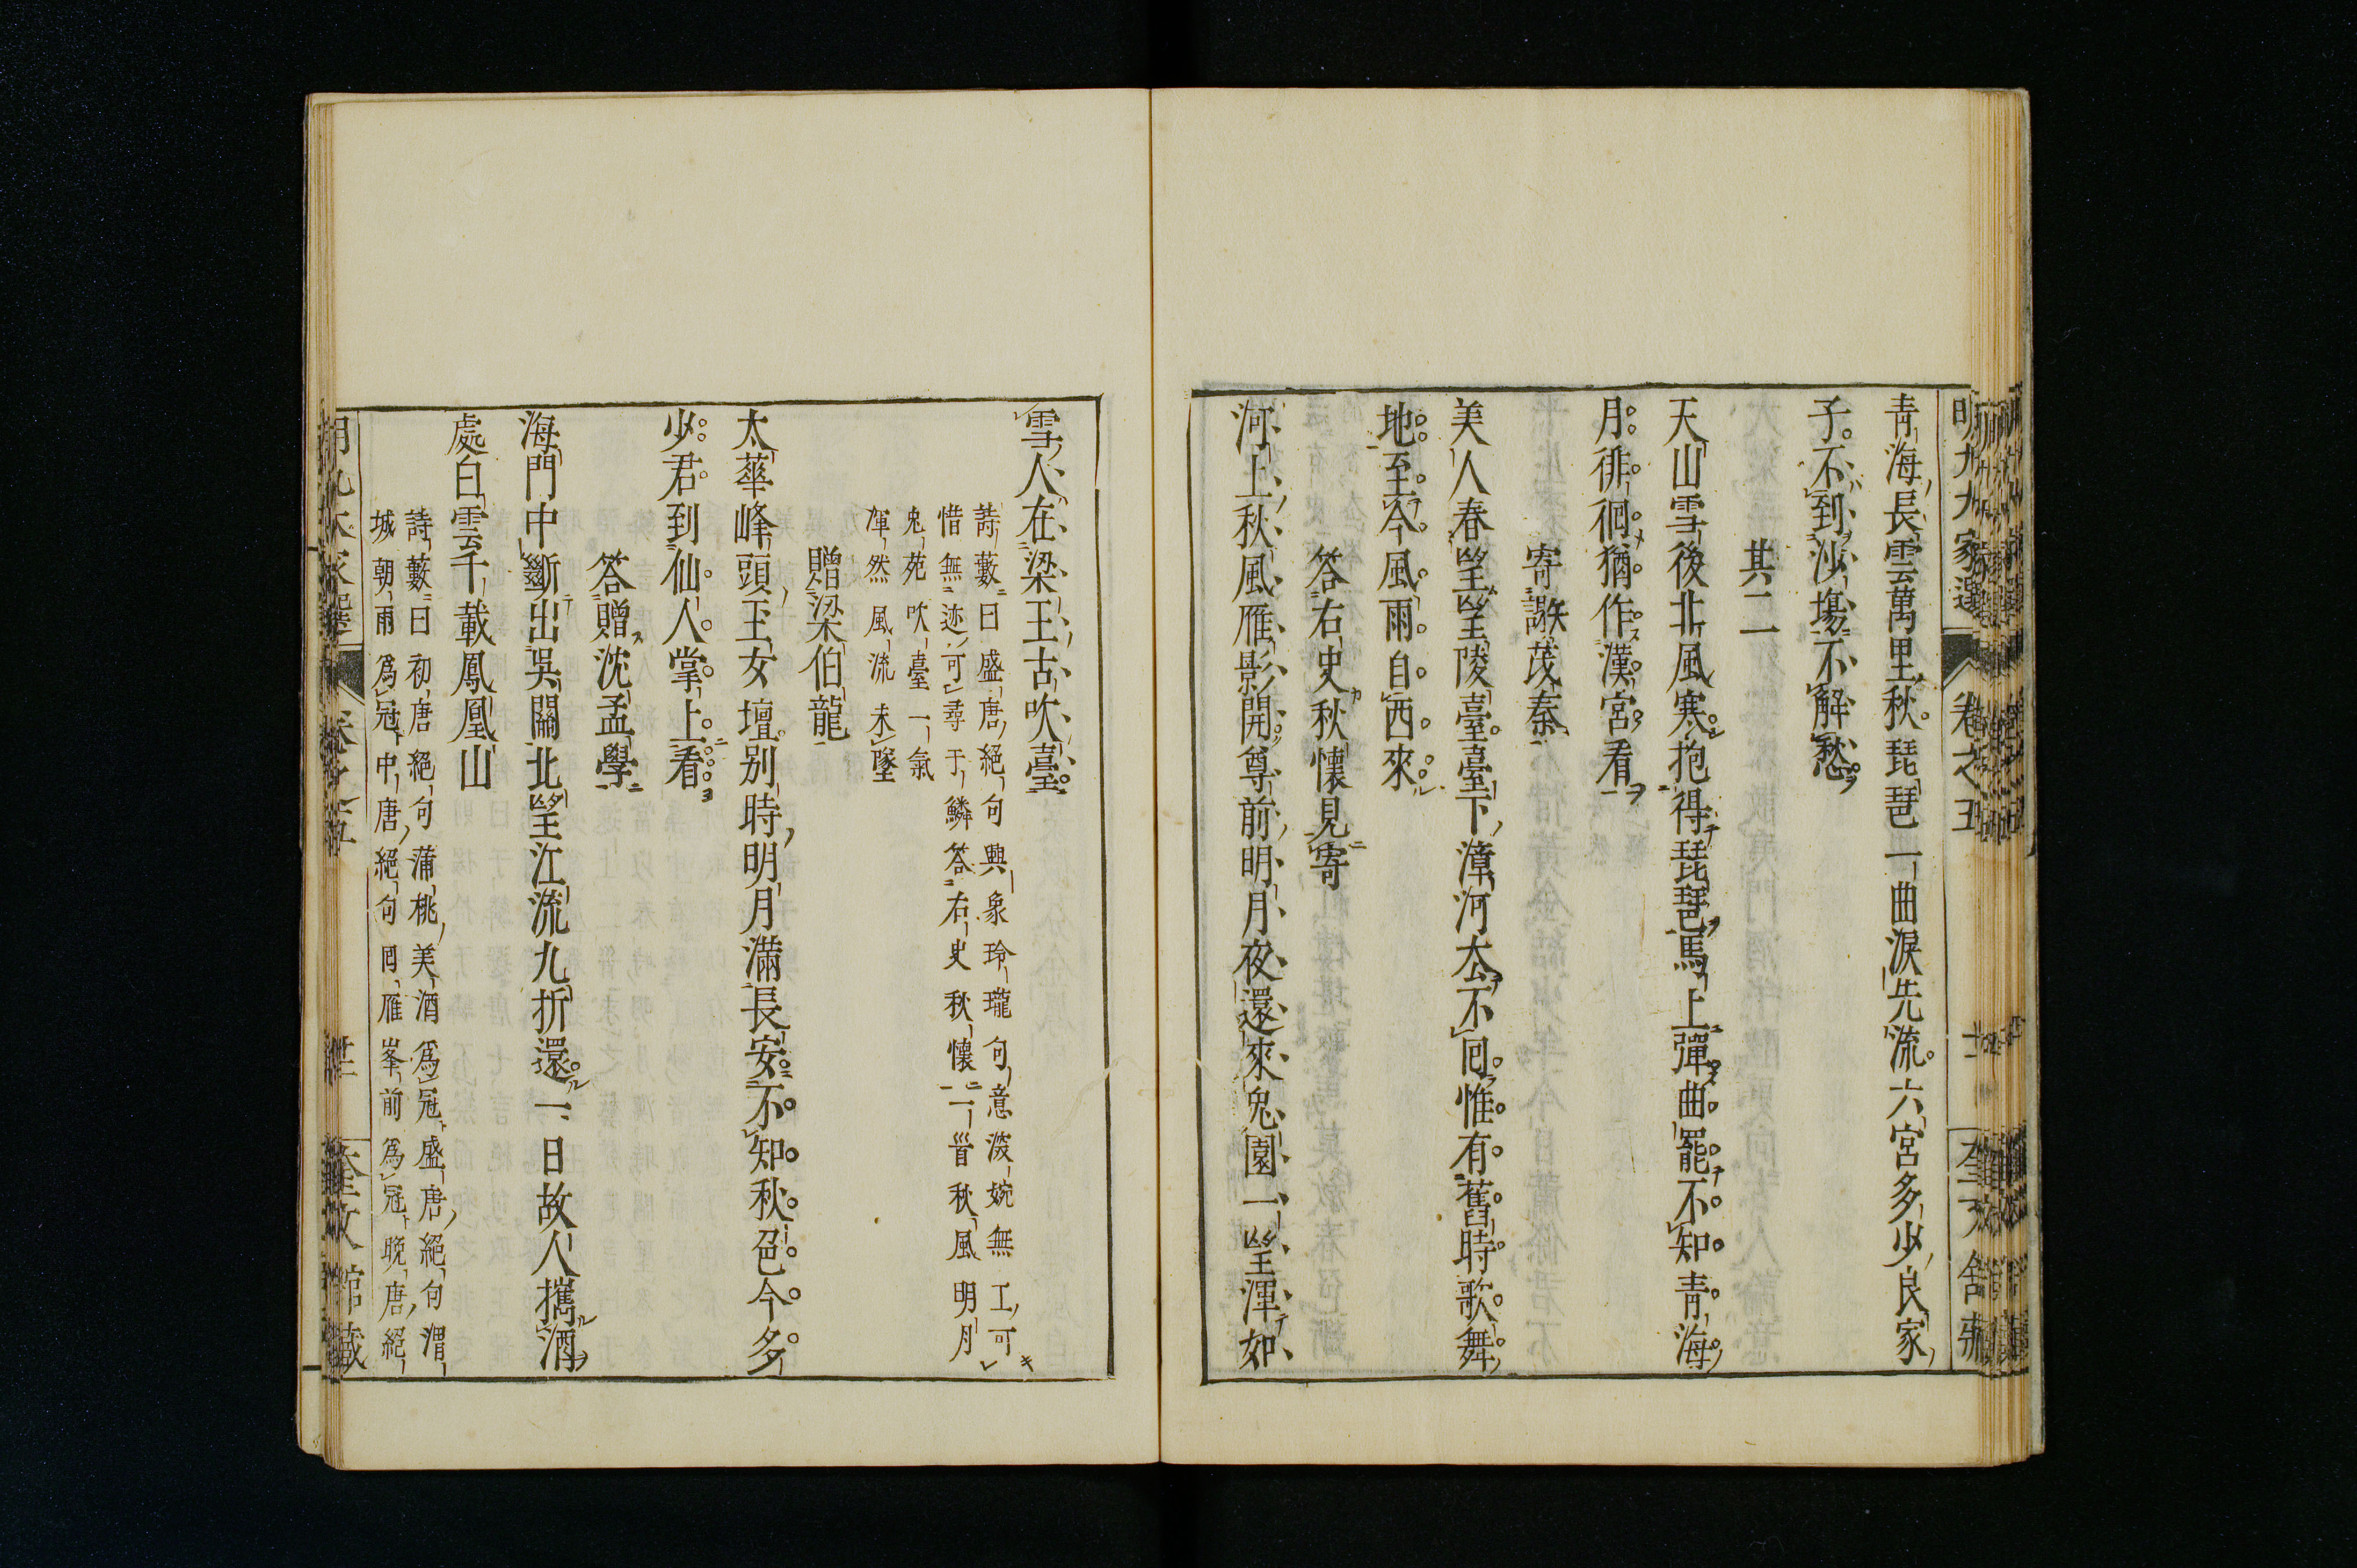 青海長雲萬里秋琵琶一曲淚先流六宮多少良家
子不到沙場不解愁
其二
天山雪後北風寒抱得琵琶馬上彈曲罷不知青海
月徘徊猶作漢宮看
寄謝茂秦
美人春望望陵臺臺下漳河去不囘惟有舊時歌舞
地至今風雨自西來
答右史秋懷見寄
河上秋風雁影開尊前明月夜還來兔園一望渾如
雪人在梁王古吹臺
詩藪曰盛唐絕句興象玲瓏句意深婉無工可
惜無迹可尋于鱗答右史秋懷一首秋風明月
兔苑吹臺一氣
渾然風流未墜
贈梁伯龍
太華峰頭玉女壇別時明月滿長安不知秋色今多
少君到仙人掌上看
答贈沈孟學
海門中斷出吳關北望江流九折還一日故人攜酒
處白雲千載鳳凰山
詩藪曰初唐絕句蒲桃美酒爲冠盛唐絕句渭
城朝雨爲冠中唐絕句囘雁峯前爲冠晚唐絕